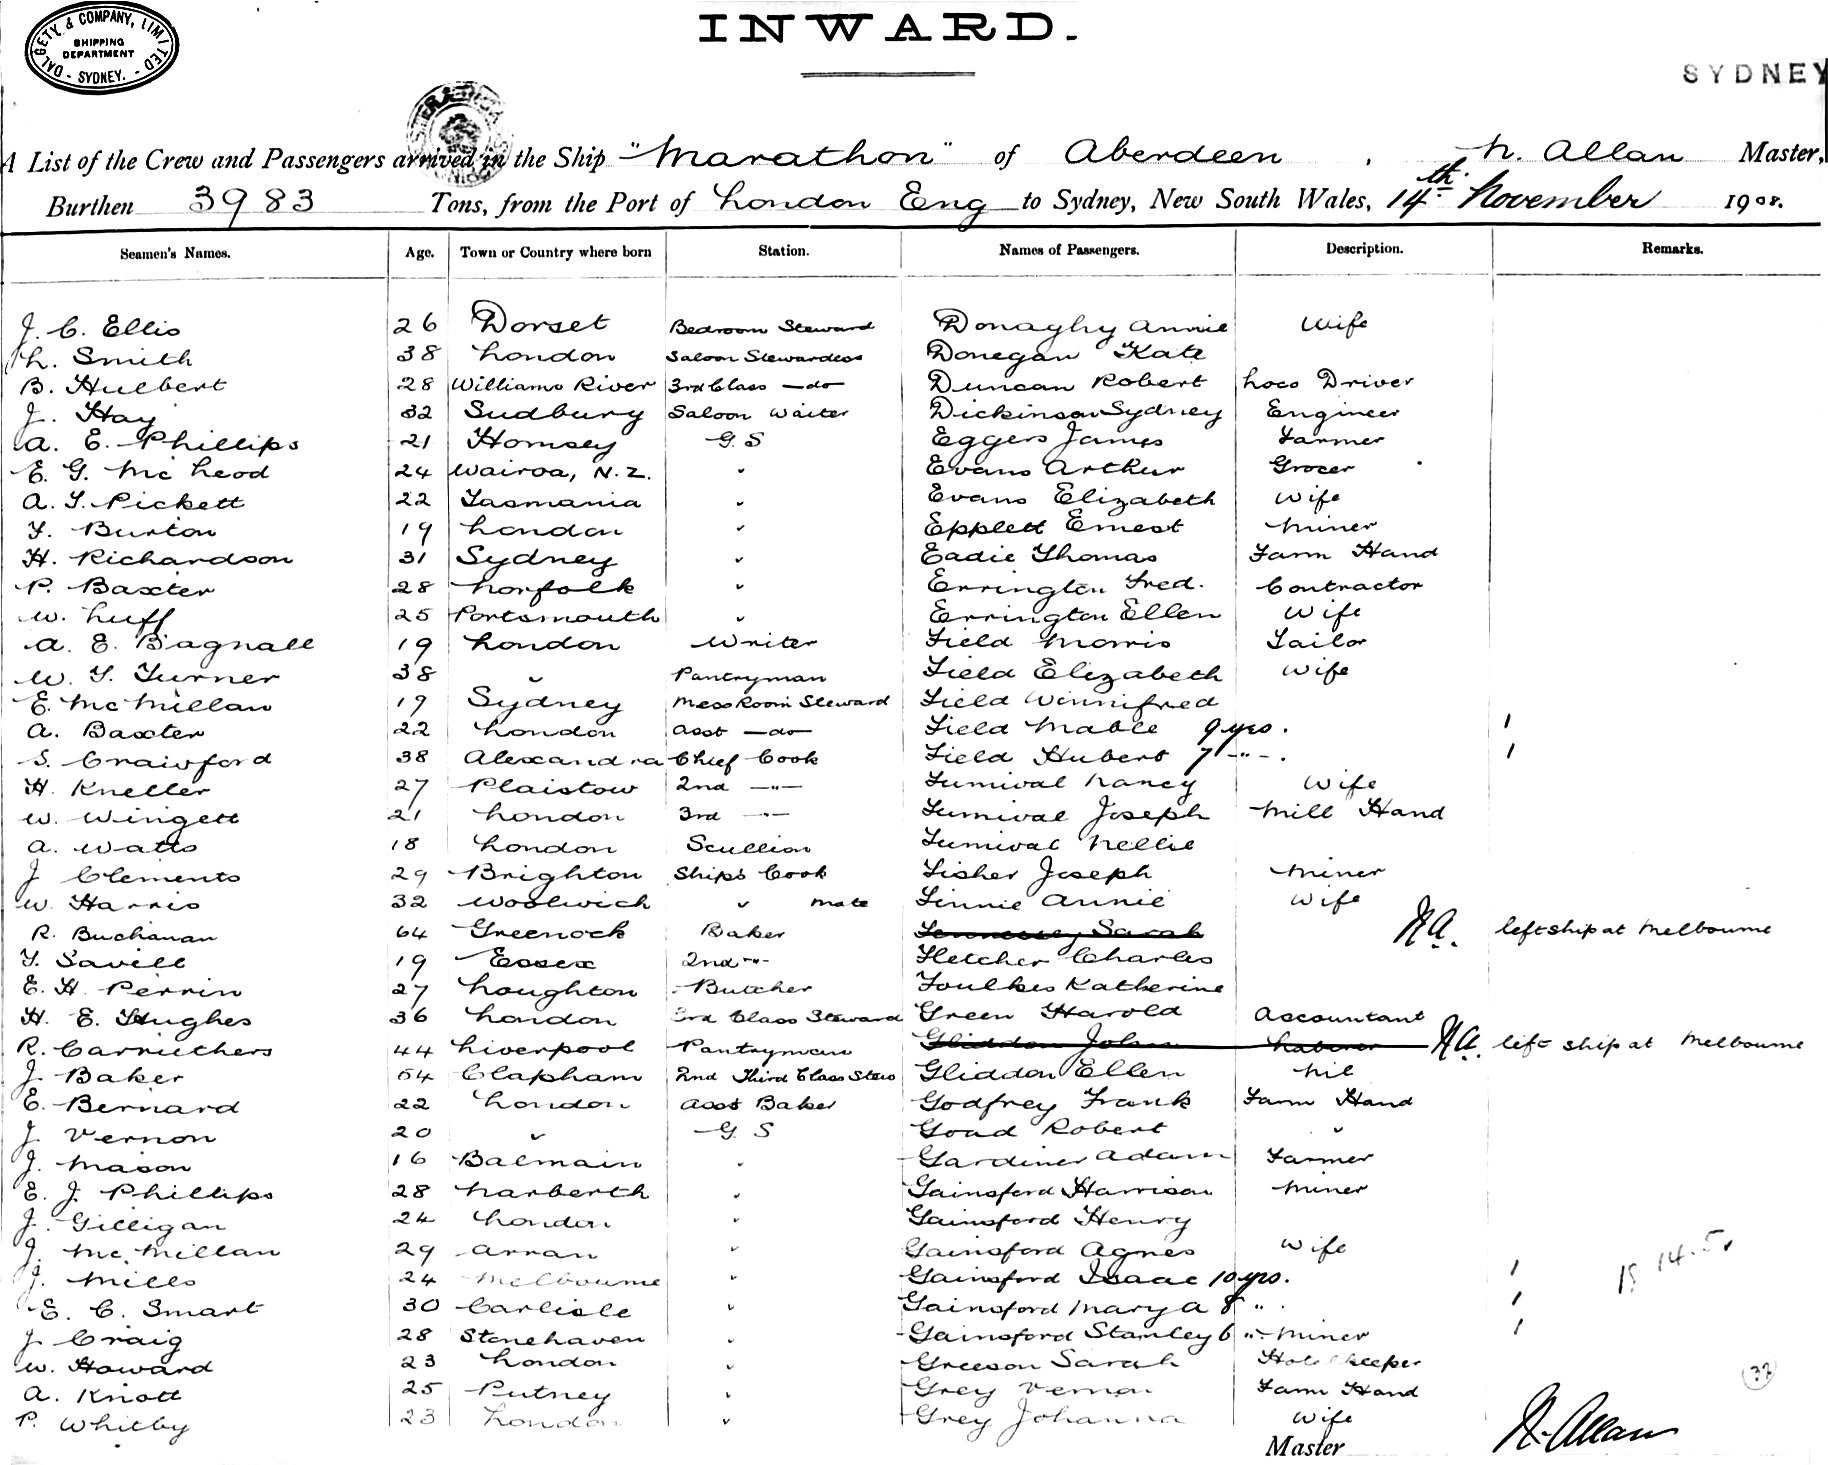 DALGETY & COMPANY, LIMITED
SHIPPING
DEPARTMENT
- SYDNEY. -
INWARD.
SYDNEY
A List of the Crew and Passengers arrived in the Ship "Marathon" of Aberdeen , N. Allan Master,
Burthen 3983 Tons, from the Port of London Eng to Sydney, New South Wales, 14th November 1908.
Seamen's Names. Age. Town or Country where born Station. Names of Passengers. Description. Remarks.
J. C. Ellis 26 Dorset Bedroom Steward Donaghy Annie Wife
L. Smith 38 London Saloon Stewardess Donegan Kate
B. Hulbert 28 Williams River 3rd Class -do- Duncan Robert Loco Driver
J. Hay 32 Sudbury Saloon Waiter Dickinson Sydney Engineer
A. E. Phillips 21 Hornsey G.S Eggers James Farmer
E. G. Mc Leod 24 Wairoa, N.Z. " Evans Arthur Grocer
A. T. Pickett 22 Tasmania " Evans Elizabeth Wife
F. Burton 19 London " Epplett Ernest Miner
H. Richardson 31 Sydney " Eadie Thomas Farm Hand
P. Baxter 28 Norfolk " Errington Fred. Contractor
W. Luff 25 Portsmouth " Errington Ellen Wife
A. E. Bagnall 19 London Writer Field Morris Tailor
W. T. Turner 38 " Pantryman Field Elizabeth Wife
E. Mc Millan 19 Sydney Mess Room Steward Field Winnifred
A. Baxter 22 London Asst -do- Field Mable 9 yrs. 1
S. Crawford 38 Alexandra Chief Cook Field Hubert 7 -"- . 1
H. Kneller 27 Plaistow 2nd -"- Furnival Nancy Wife
W. Wingett 21 London 3rd -"- Furnival Joseph Mill Hand
A. Watts 18 London Scullion Furnival Nellie
J Clements 29 Brighton Ship's Cook Fisher Joseph Miner
W. Harris 32 Woolwich " Mate Finnie Annie Wife
R. Buchanan 64 Greenock Baker Fennessey Sarah N.A. left ship at Melbourne
T. Savell 19 Essex 2nd -"- Fletcher Charles
E. H. Perrin 27 Loughton Butcher Foulkes Katherine
H. E. Hughes 36 London 3rd Class Steward Green Harold Accountant
R. Carruthers 44 Liverpool Pantryman Gliddon John Laborer N.A. left ship at Melbourne
J. Baker 54 Clapham 2nd Third Class Stew Gliddon Ellen Nil
E. Bernard 22 London Asst Baker Godfrey Frank Farm Hand
J. Vernon 20 " G S Goad Robert "
J. Mason 16 Balmain " Gardiner Adam Farmer
E. J. Phillips 28 Narberth " Gainsford Harrison Miner
J. Gilligan 24 London " Gainsford Henry
J. Mc Millan 29 Arran " Gainsford Agnes Wife
J. Mills 24 Melbourne " Gainsford Isaac 10 yrs. 1
E. C. Smart 30 Carlisle " Gainsford Mary A 8 " . 1
J. Craig 28 Stonehaven " Gainsford Stanley 6 " . Miner 1
W. Howard 23 London " Greeson Sarah Hotel keeper
A. Knott 25 Putney " Grey Vernon Farm Hand
P. Whitby 23 London " Grey Johanna Wife
32
Master N. Allan